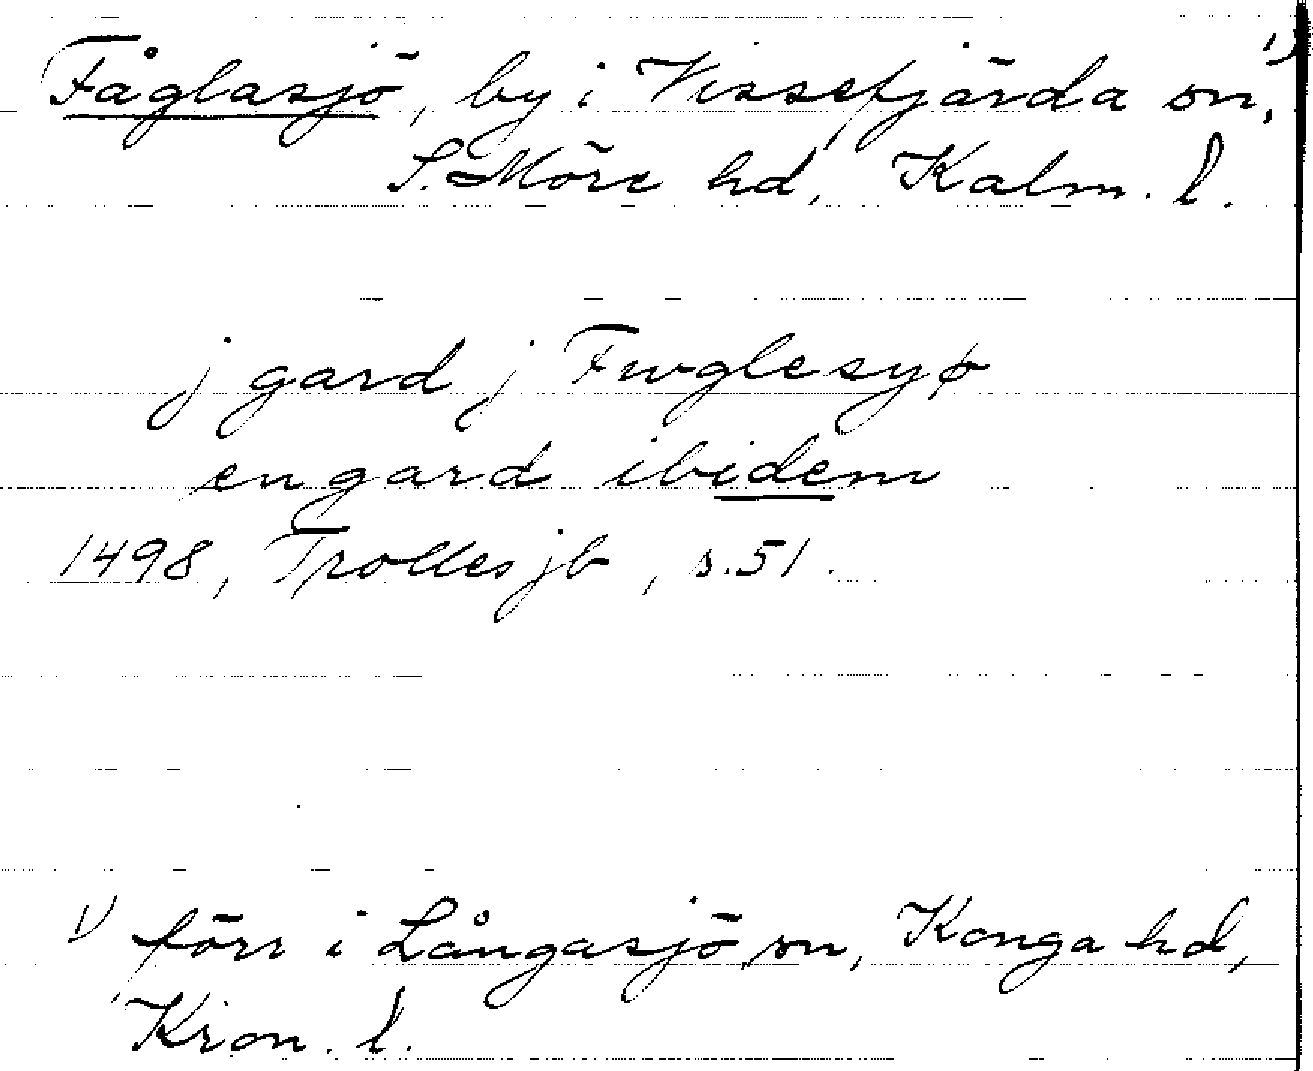 Fåglasjö, by i Vissefjärda sn, 1)
S. Möre hd, Kalm. l.
j gard j Fwglesyø
en gard ibidem
1498, Trolles jb, s. 51.
1) förr i Långasjö sn, Konga hd,
Kron. l.